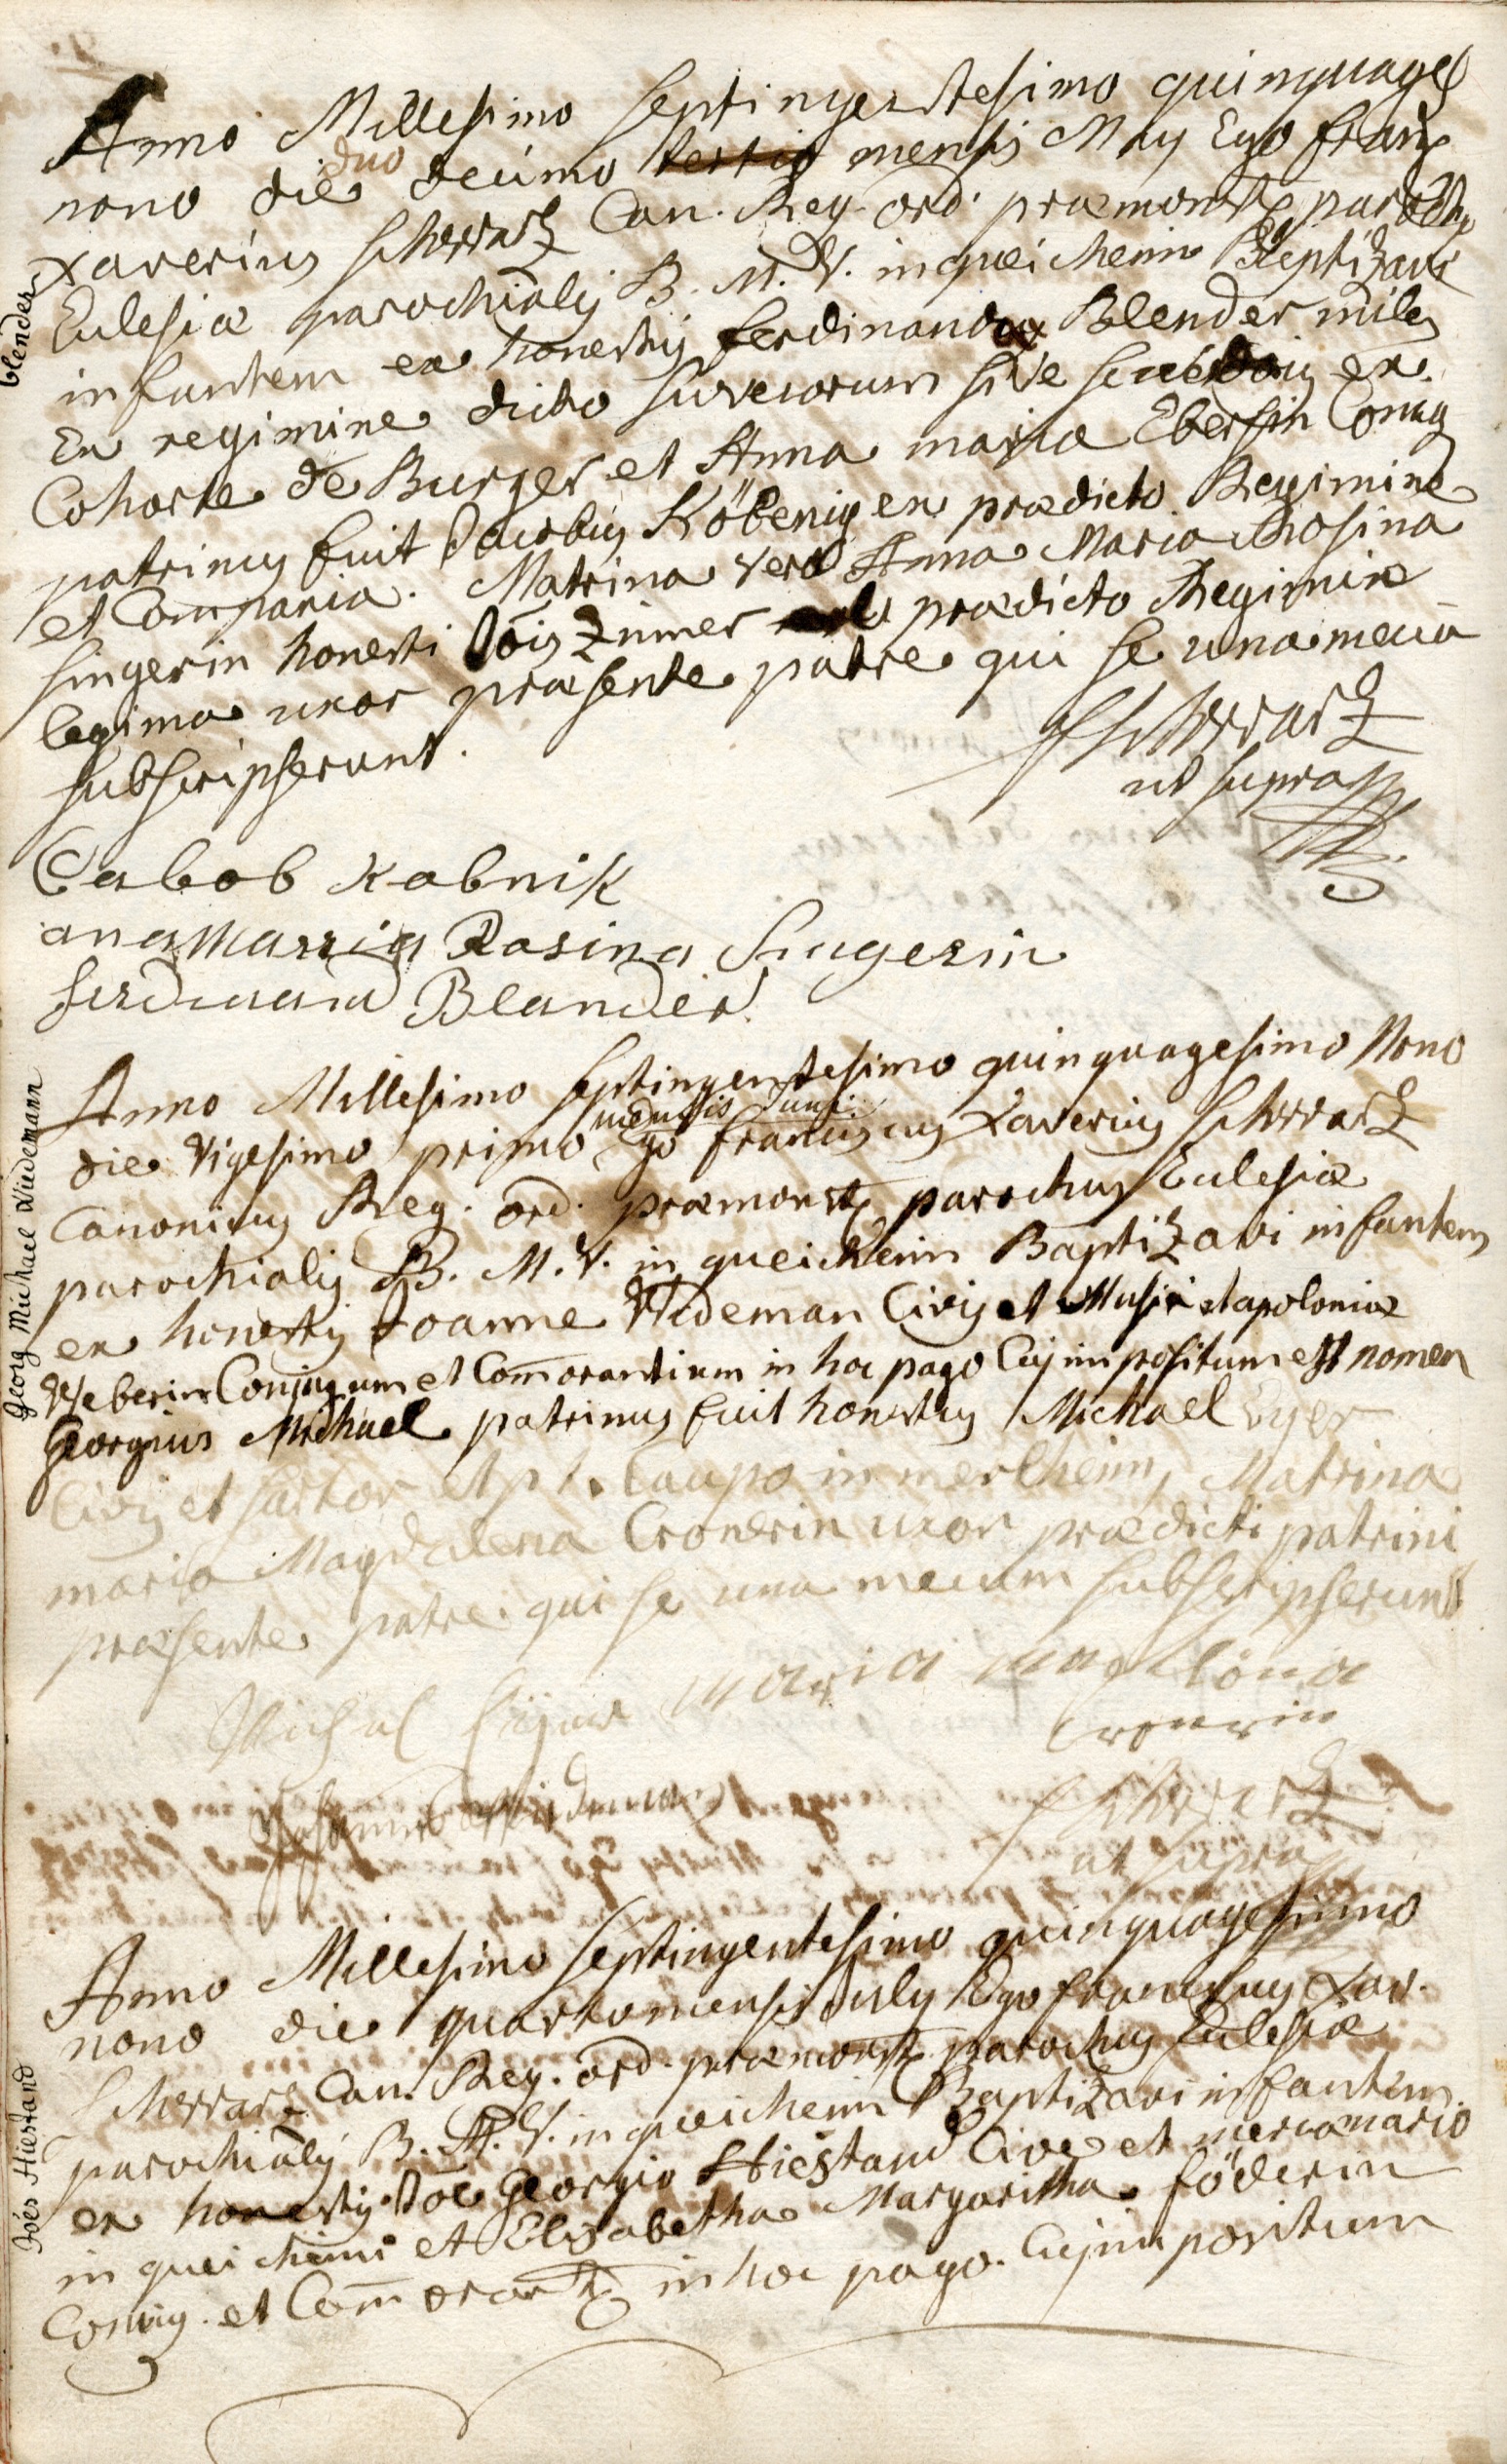 Anno Millesimo septingentesimo quinquages
duo
nono die decimo tertio mensis May Ego Franz
Xaverius Scherrartz Can. Reg. ord. præmonst. parochus
Eclesiæ parochialis B. M. V. in queicheim Baptizavi
blender
infantem ex honestis ferdinando Blender miles
Ex regimine dicto suecorum sive ex
Cohorte de Burger et Anna maria Ebersin Coniug
patrinus fuit Jacobus Köbenig ex prædicto Regimine
et Compania. Matrina vero Anna Maria Rosina
singerin honesti Jois Zimer prædicto Regimine
legima uxor præsente patre qui se una mecū
subscripserunt.
Scherrartz
ut supra
Cabob Kabnik
ana Marria Rosina Singerin
ferdinand Blander
Anno Millesimo septingentesimo quinquagesimo Nono
mensis Juni
die vigesimo primo Ego franciscus Xaverius Scherrartz
Georg Michael Wiedemann
Canonicus Reg. ord. præmonst. parochus Eclesiæ
parochialis B. M. V. in queicheim Baptizavi infantem
ex honestis Joanne Wideman Civis et Musici et apoloniæ
Weberin Conjugum et Com̄orantium in hoc pago Cuj impositum est nomen
Georgius Michael patrinus fuit honestus Michael Eyer
Civis et sartor et p. t. Caupo in merlheim, Matrina
maria Magdalena Cronerin uxor prædicti patrini
præsente patre qui se una mecum subscripserunt
Michal Eijer maria magdlöna
Cronerin
Johannes Wideman
Scherrartz
ut supra
Anno Millesimo septingentesimo quinquagesimo
nono die quarto mensis July Ego franciscus Xav.
Scherrartz Can. Reg. ord. præmonst. parochus Eclesiæ
Joēs Hiestand
parochialis B. M. V. in queicheim Baptizavi infantem
ex honestis Joē Georgio Hiestand Cive et mercenario
in queicheim et Elisabetha Margaritha föderin
Coniug. et Com̄orant. in hoc pago. Cuj impositum